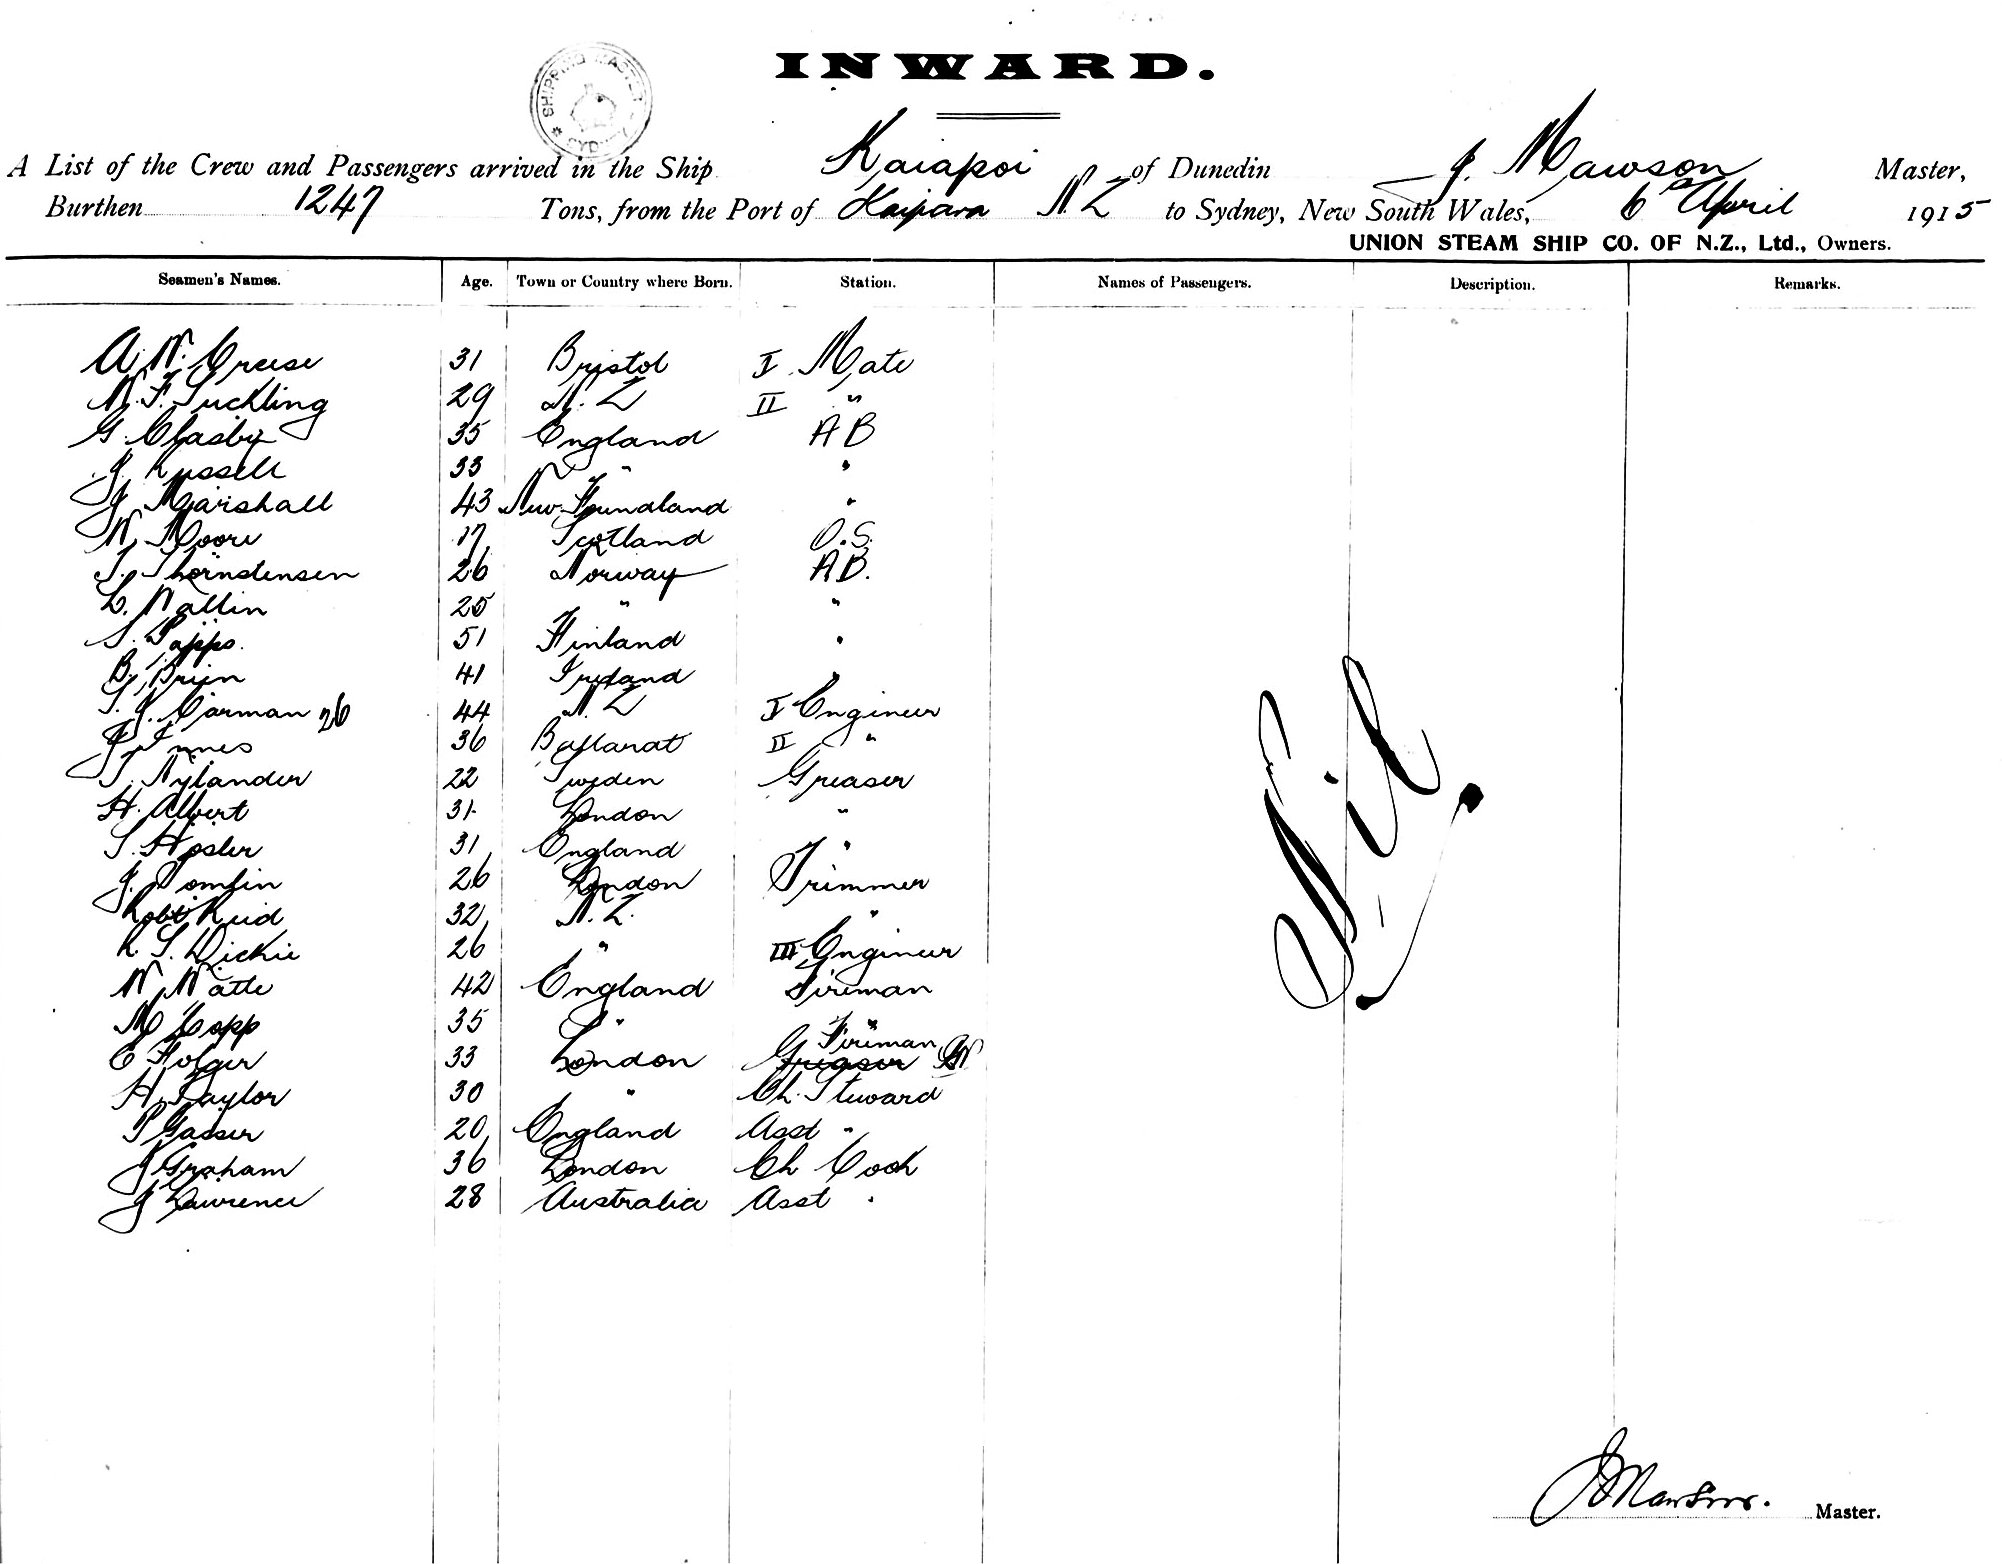 INWARD.
SHIPPING MASTER SYDNEY
A List of the Crew and Passengers arrived in the Ship Kaiapoi of Dunedin J. Mawson Master,
Burthen 1247 Tons, from the Port of Kaipara N.Z to Sydney, New South Wales, 6 April 1915
UNION STEAM SHIP CO. OF N.Z., Ltd., Owners.
Seamen's Names. Age. Town or Country where Born. Station. Names of Passengers. Description. Remarks.
A. W. Creese 31 Bristol I Mate
W. F. Suckling 29 N. Z II "
G. Clasby 35 England A B
J. Russell 33 " "
J Marshall 43 New Foundland "
W. Moore 17 Scotland O.S.
T. Thorndensen 26 Norway A B.
L. Wallin 25 " "
S. Papps. 51 Finland "
B. Brien 41 Ireland "
T. J. Carman 26 44 N. Z I Engineer
J Innes 36 Ballarat II "
T. Nylander 22 Sweden Greaser
H. Albert 31 London "
T. Hosler 31 England "
J. Tomlin 26 London Trimmer
Robt Reid 32 N. Z. "
R. S. Dickie 26 " III Engineer
W. Watte 42 England Fireman
M Copp 35 " "
E Folger 33 London Greaser Fireman
H. Taylor 30 " Ch. Steward
P Gasser 20 England Asst "
J Graham 36 London Ch Cook
J Lawrence 28 Australia Asst "
Nil
J Mawson. Master.